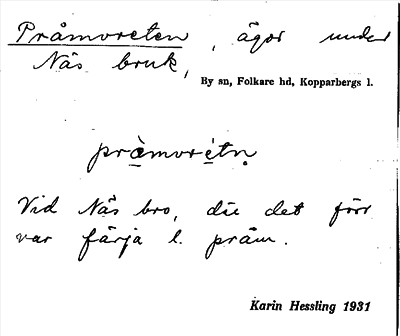 Pråmvreten, ägor under
Näs bruk,
By sn, Folkare hd, Kopparbergs l.
pràmvrétṇ
Vid Näs bro, där det förr
var färja l. pråm.
Karin Hessling 1931